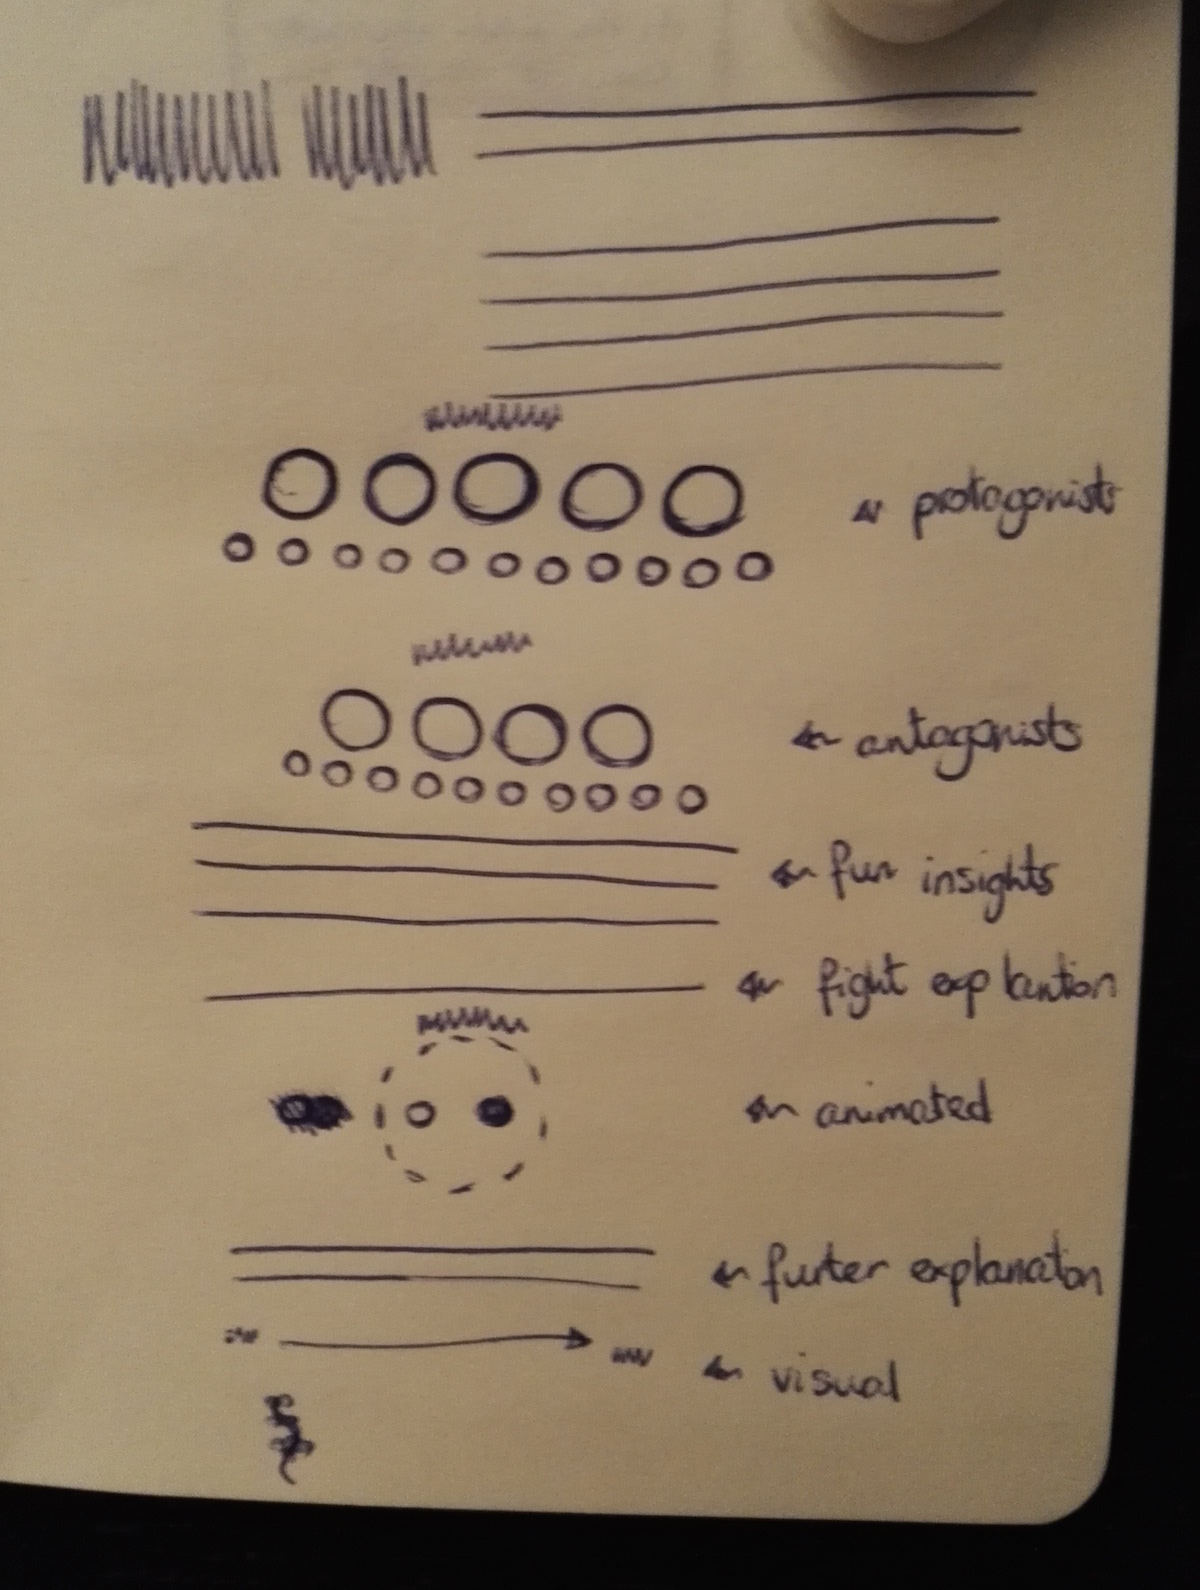 protagonists
antagonists
fun insights
fight explantion
animated
furter explanation
visual